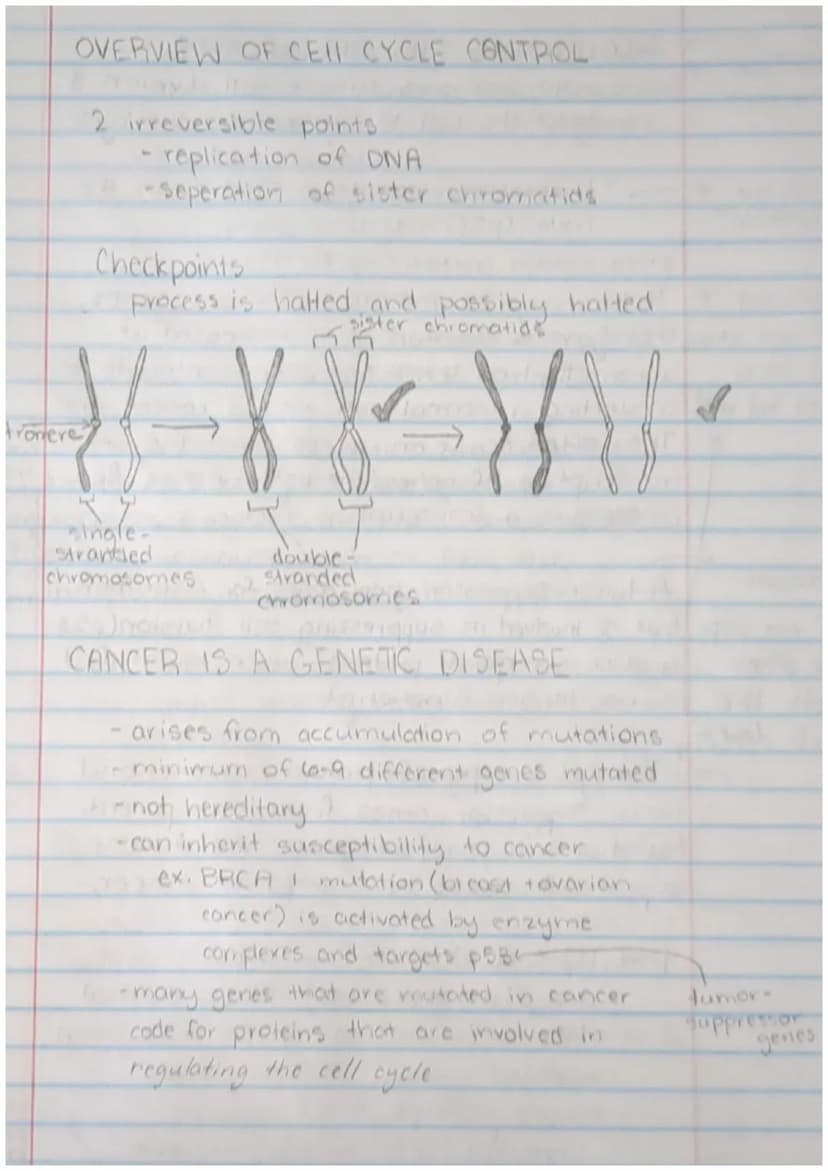 OVERVIEW OF CEll CYCLE CONTROL
2 irreversible points
- replication of DNA
- seperation of sister chromatids
Checkpoints
process is halted and possibly halted
sister chromatids
tromere
single-
stranded
chromosomes
double-
stranded
chromosomes
CANCER IS A GENETIC DISEASE
- arises from accumulation of mutations
- minimum of 6-9 different genes mutated
- not hereditary
- can inherit susceptibility to cancer
ex. BRCA 1 mutation (breast + ovarian
cancer) is activated by enzyme
complexes and targets
- many genes that are mutated in cancer
code for proteins that are involved in
regulating the cell cycle
tumor-
suppressor
genes